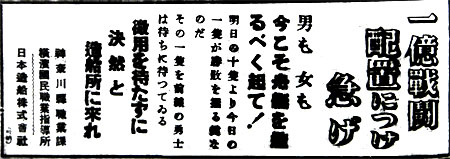 一億戰鬪
配置につけ
急げ
男も 女も
今こそ老軀を鞭
るべく起て！
明日の十隻より今日の
一隻が勝敗を握る鍵な
のだ
その一隻を前線の勇士
は待ちに待つてゐる
徴用を待たずに
決然と
造船所に來れ
神奈川縣職業課
横濱國民職業指導所
日本造船株式會社